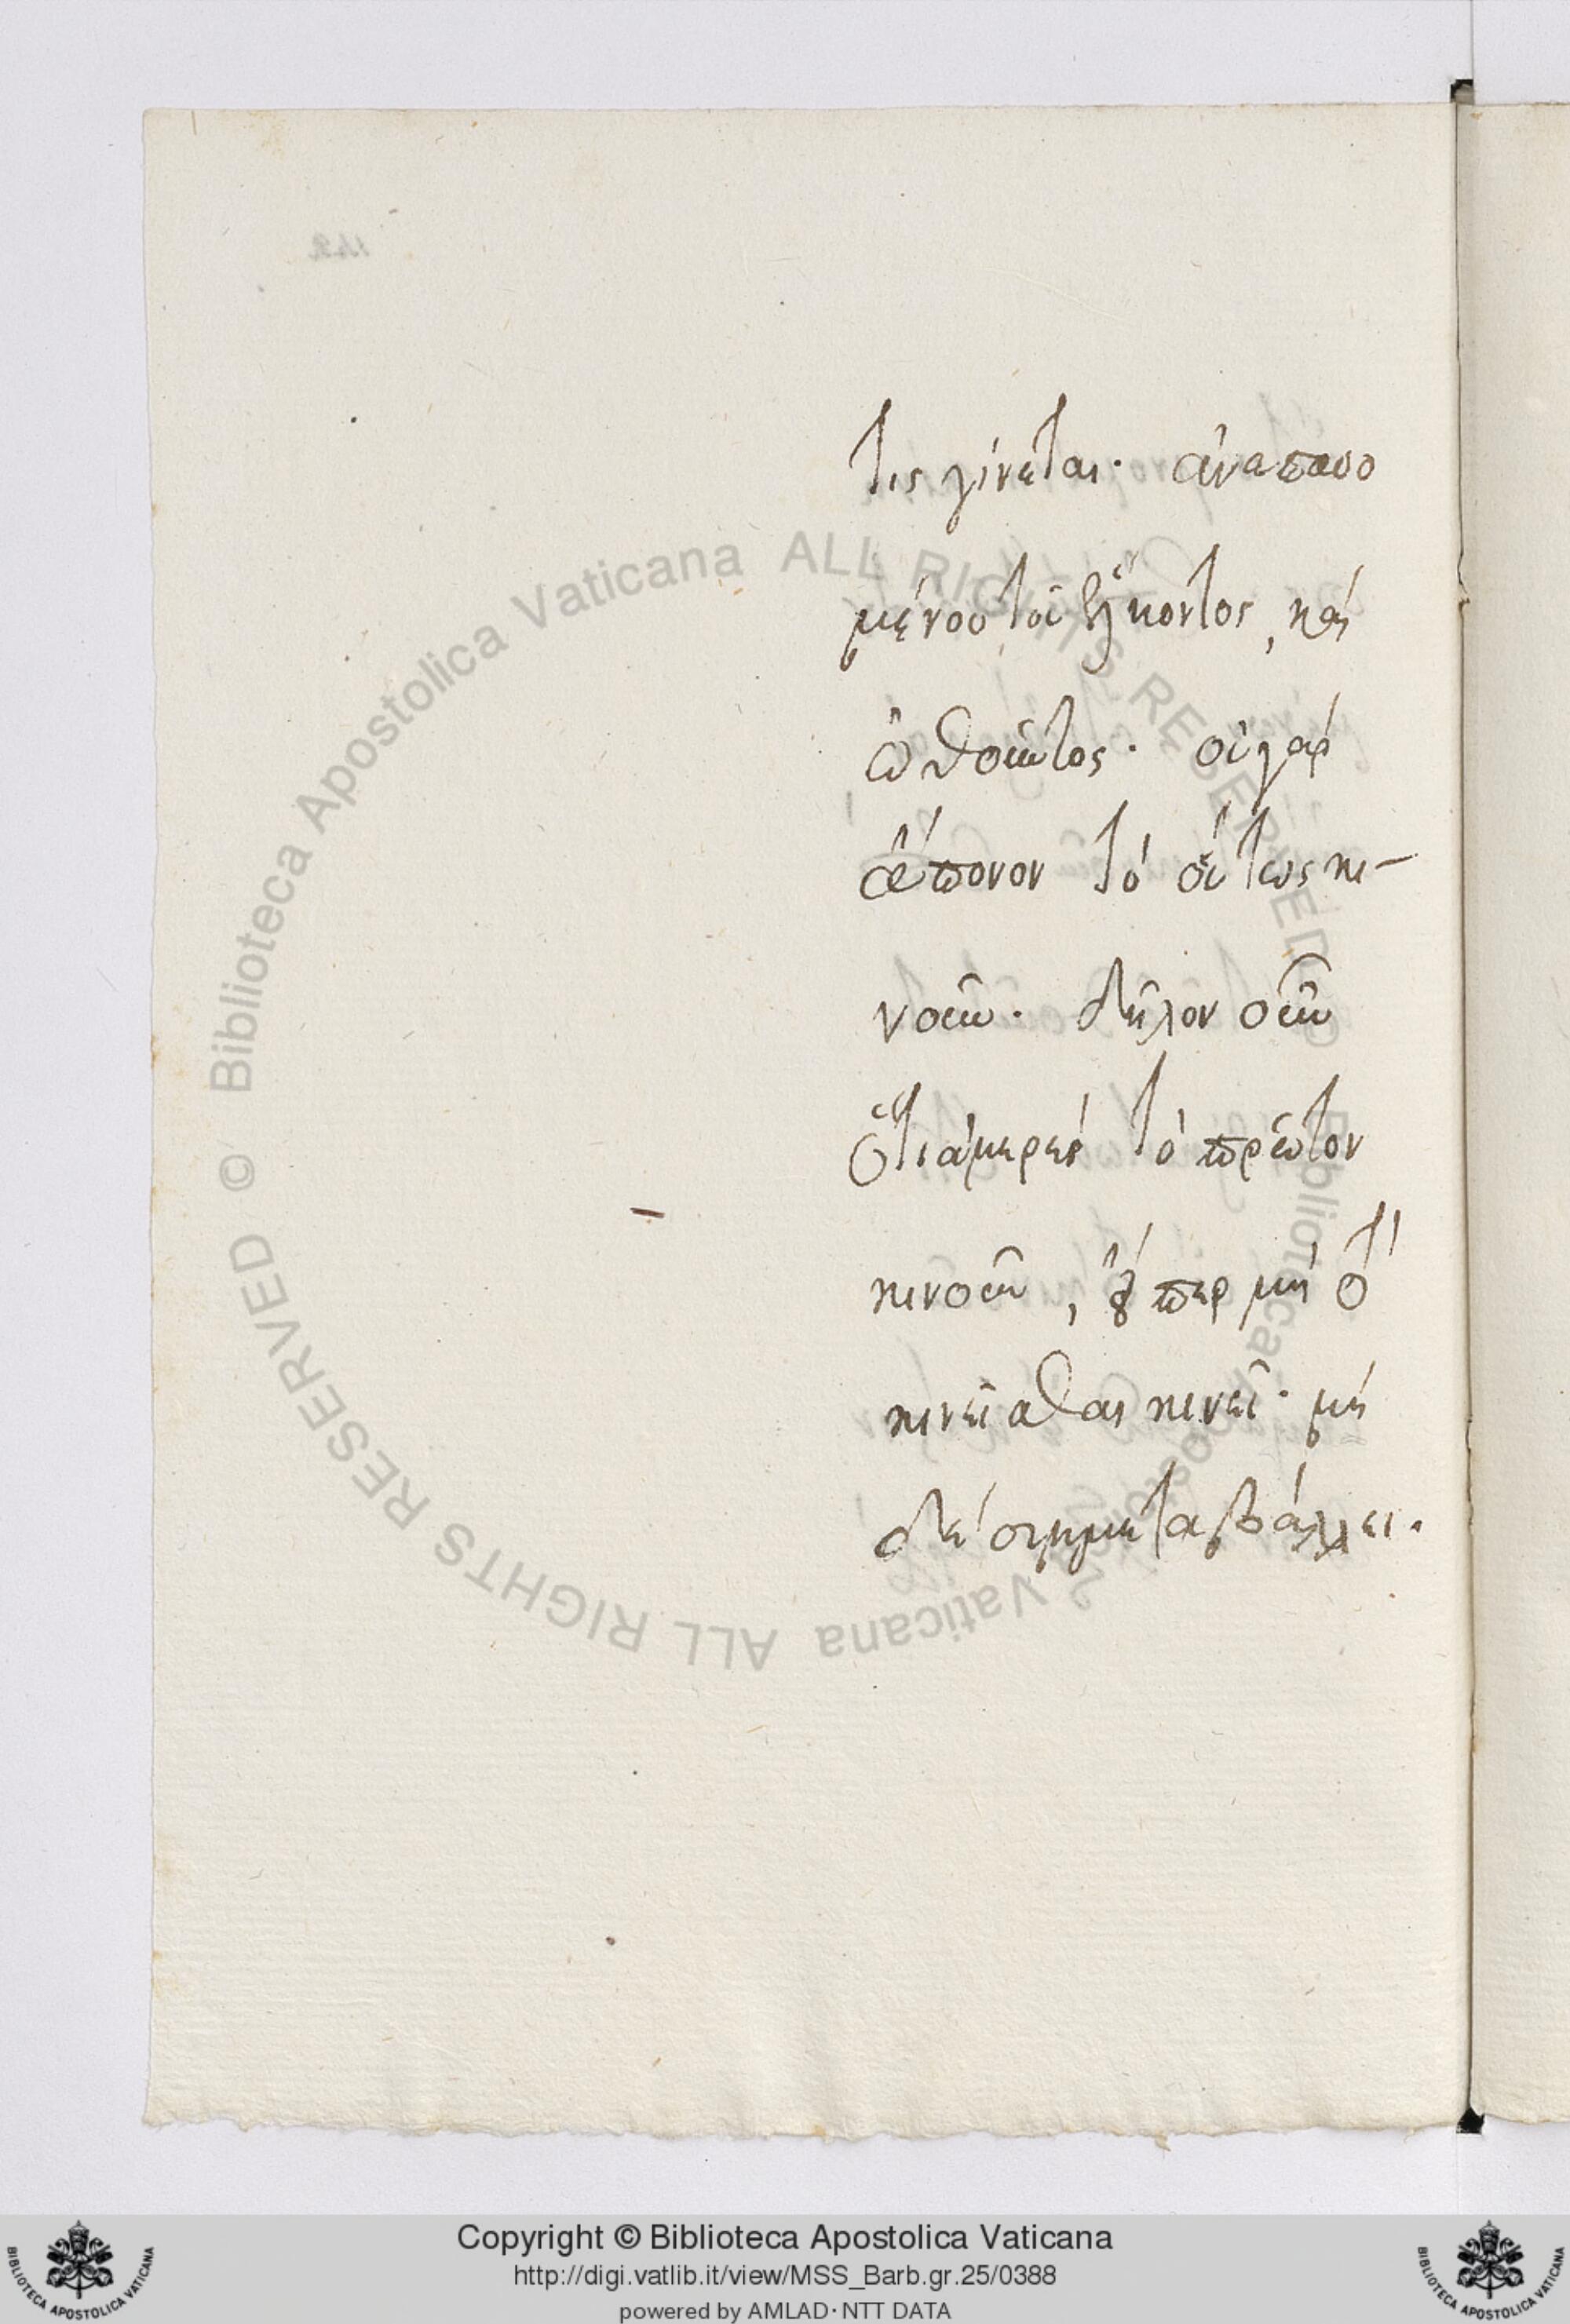 τις γίνεται· ἀναπαυο
μένου τοῦ ἕλκοντος, καὶ
ὠθοῦντος· οὐ γὰρ
ἄπονον τὸ οὕτως κι-
νοῦν· δῆλον οὖν
ὅτι ἀμερὲς τὸ πρῶτον
κινοῦν, μὴ
κινεῖσθαι κινεῖ· μη
δὲ συμμεταβάλλει·
© Biblioteca Apostolica Vaticana ALL RIGHTS RESERVED
© Biblioteca Apostolica Vaticana ALL RIGHTS RESERVED
Copyright © Biblioteca Apostolica Vaticana
http://digi.vatlib.it/view/MSS_Barb.gr.25/0388
powered by AMLAD·NTT DATA
BIBLIOTECA APOSTOLICA VATICANA
BIBLIOTECA APOSTOLICA VATICANA